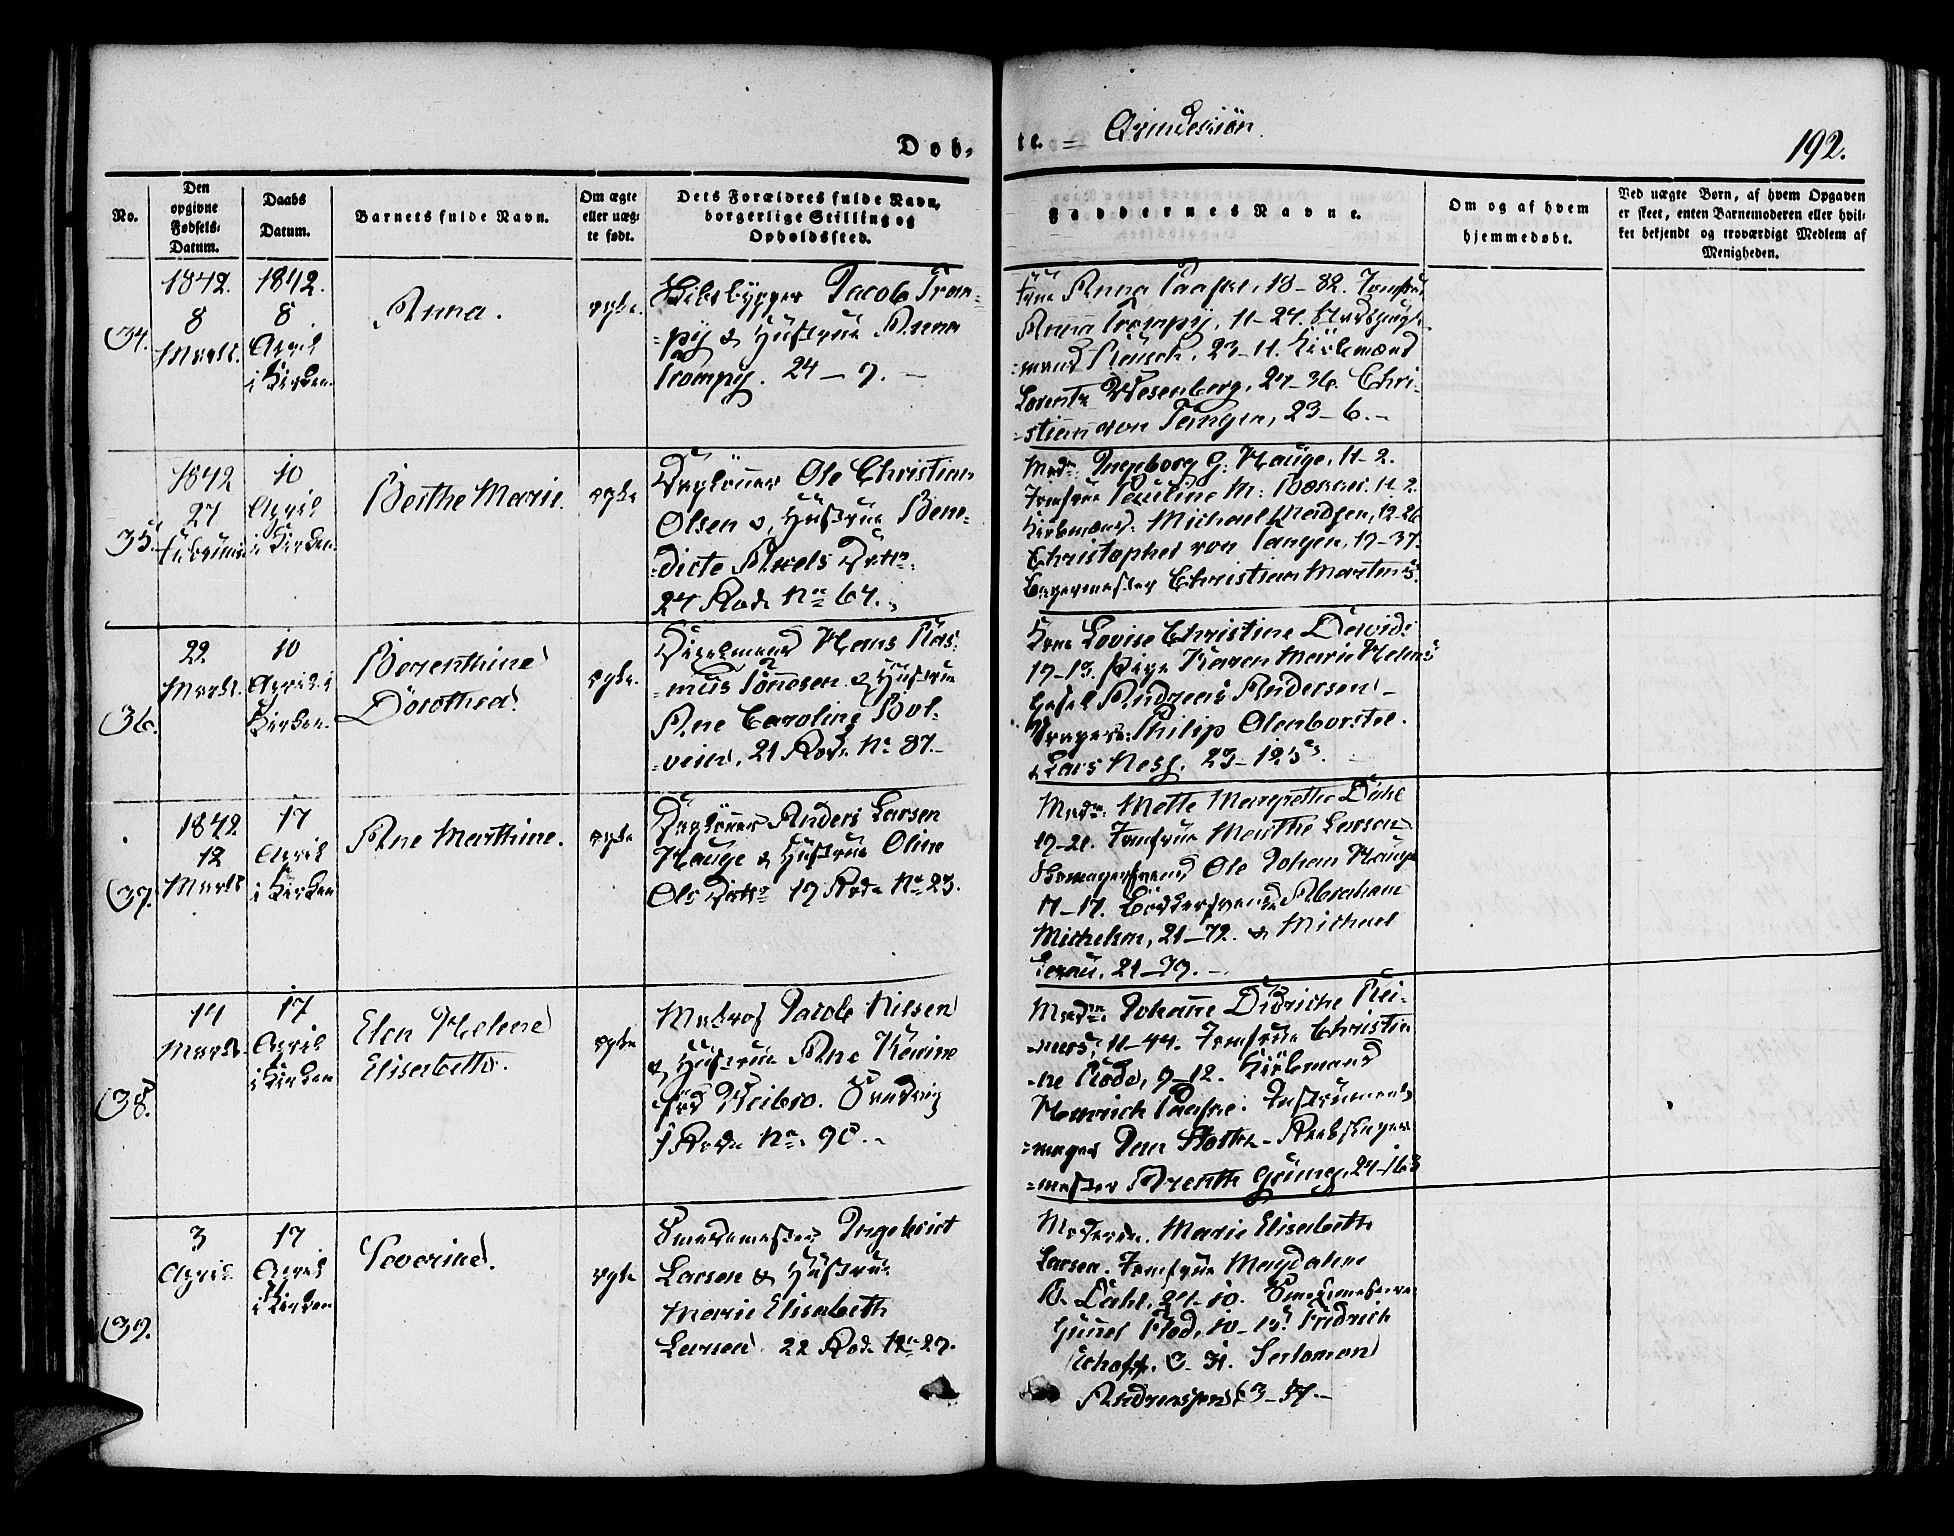 Døb-
te. = Qvindekiøn.
192.
No.
Den opgivne Fødsels-Datum.
Daabs Datum.
Barnets fulde Navn.
Om ægte eller uæg-te født.
Dets Forældres fulde Navn, borgerlige Stilling og Opholdssted.
Faddernes Navne.
Om og af hvem hjemmedøbt.
Ved uægte Børn, af hvem Opgaven er skeet, enten Barnemoderen eller hvil-ket bekjendt og troværdigt Medlem af Menigheden.
34.
1842.
8
Marts.
1842.
8
April
i Kirken.
Anna.
ægte.
Skibsbygger Jacob Trom-
=py & Hustrue Anna
Trompy. 24 - 7. -
Frue Anna Paaske, 18-82. Jomfrue
Anna Trompy, 11-24.
=mand Reusch, 23-11. Kiøbmænd
Lorentz Wesenberg, 24-36. Chri-
=stian von Tangen, 23-6.-
35.
1842
27
Februar
10
April
i Kirken.
Berthe Marie.
ægte
Dagløner Ole Christian
Olsen & Hustrue Bene-
=dicte Axels Dattr.
24 Rode No 64.
Mad. Ingeborg G: Hauge, 11-2.
Jomfrue Pauline M: 11-2
Kiøbmænd: Michael Madsen, 12-26
Christopher von Tangen, 19-37.
Bagermester Christian Martens.
36.
22
Marts.
10
April i
Kirken.
Berenthine
Dorothea.
ægte.
Hans Ras-
=mus Tønnesen & Hustrue
Ane Caroline Bol-
, 21 Rode No 87.-
Lovise Christine David
19-13. Pige Karen Marie Helm
Andreas Andersen -
Philip Olenborstel.
& Lars Ness, 23-123.
37.
1842
12
Marts
17
April
i Kirken
Ane Marthine.
ægte
Dagløner Anders Larsen
Hauge & Hustrue Oline
Ols Dattr 19 Rode No 23.
Mad: Mette Margrethe Dahl
19-21. Jomfrue Marthe Larsen
Skomagersvend Ole Johan Hauge
17-17. Bødkersvende Abraham
Michelsen, 21-72. & Michael
, 21-79.-
38.
14
Marts.
17
April
i Kirken
Elen Helene
Elisabeth.
ægte
Matros Jacob Nilsen
& Hustrue Ane Karine
fød Weibro. Sandvig
1 Rode No. 90.
Mad. Johanne Didriche Rei-
=mers, 11-44. Jomfrue Christi-
=ne Rode, 9-12. Kiøbmand
Henrich Paaske. Instrument-
=mager Jan - Rebslager
=mester Arenth Grüner, 24-163
39.
3
April
17
April
i Kirken
Severine.
ægte
Smedemester Ingebrict
Larsen & Hustrue
Marie Elisabeth
Larsen 22 Rode No 27.
Moderen. Marie Elisabeth
Larsen. Jomfrue Magdalene
B. Dahl, 24-10.
Fridrich
Salomon
Andreassen, 3-57.-